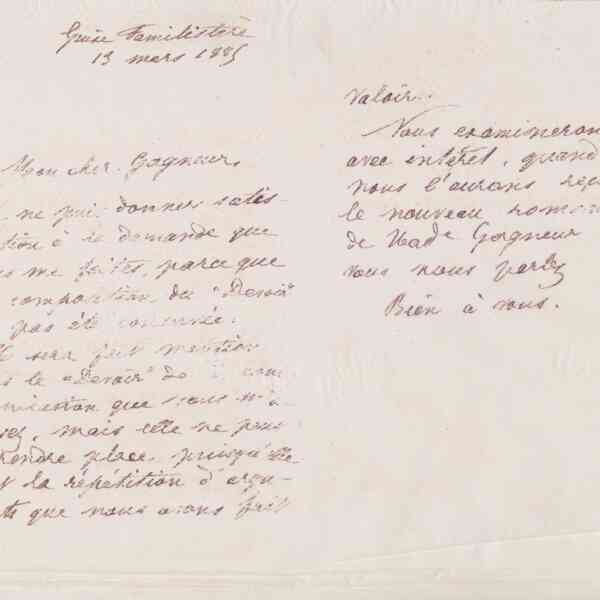 Guise Familistère
13 mars 1885
Mon cher Gagneur,
ne puis donner satis-
tion à la demande que
s me faites, parce que
composition du "Devoir"
pas été conservée.
sera fait mention
s le "Devoir" de
nication que vous m'a-
vez, mais elle ne peut
rendre place, puisqu'elle
t la répétition d'argu-
ts que nous avons fait
valoir.
Nous examineron
avec intérêt, quand
nous l'aurons reçu
le nouveau roman
de Made Gagneur
vous nous parlez
Bien à vous.